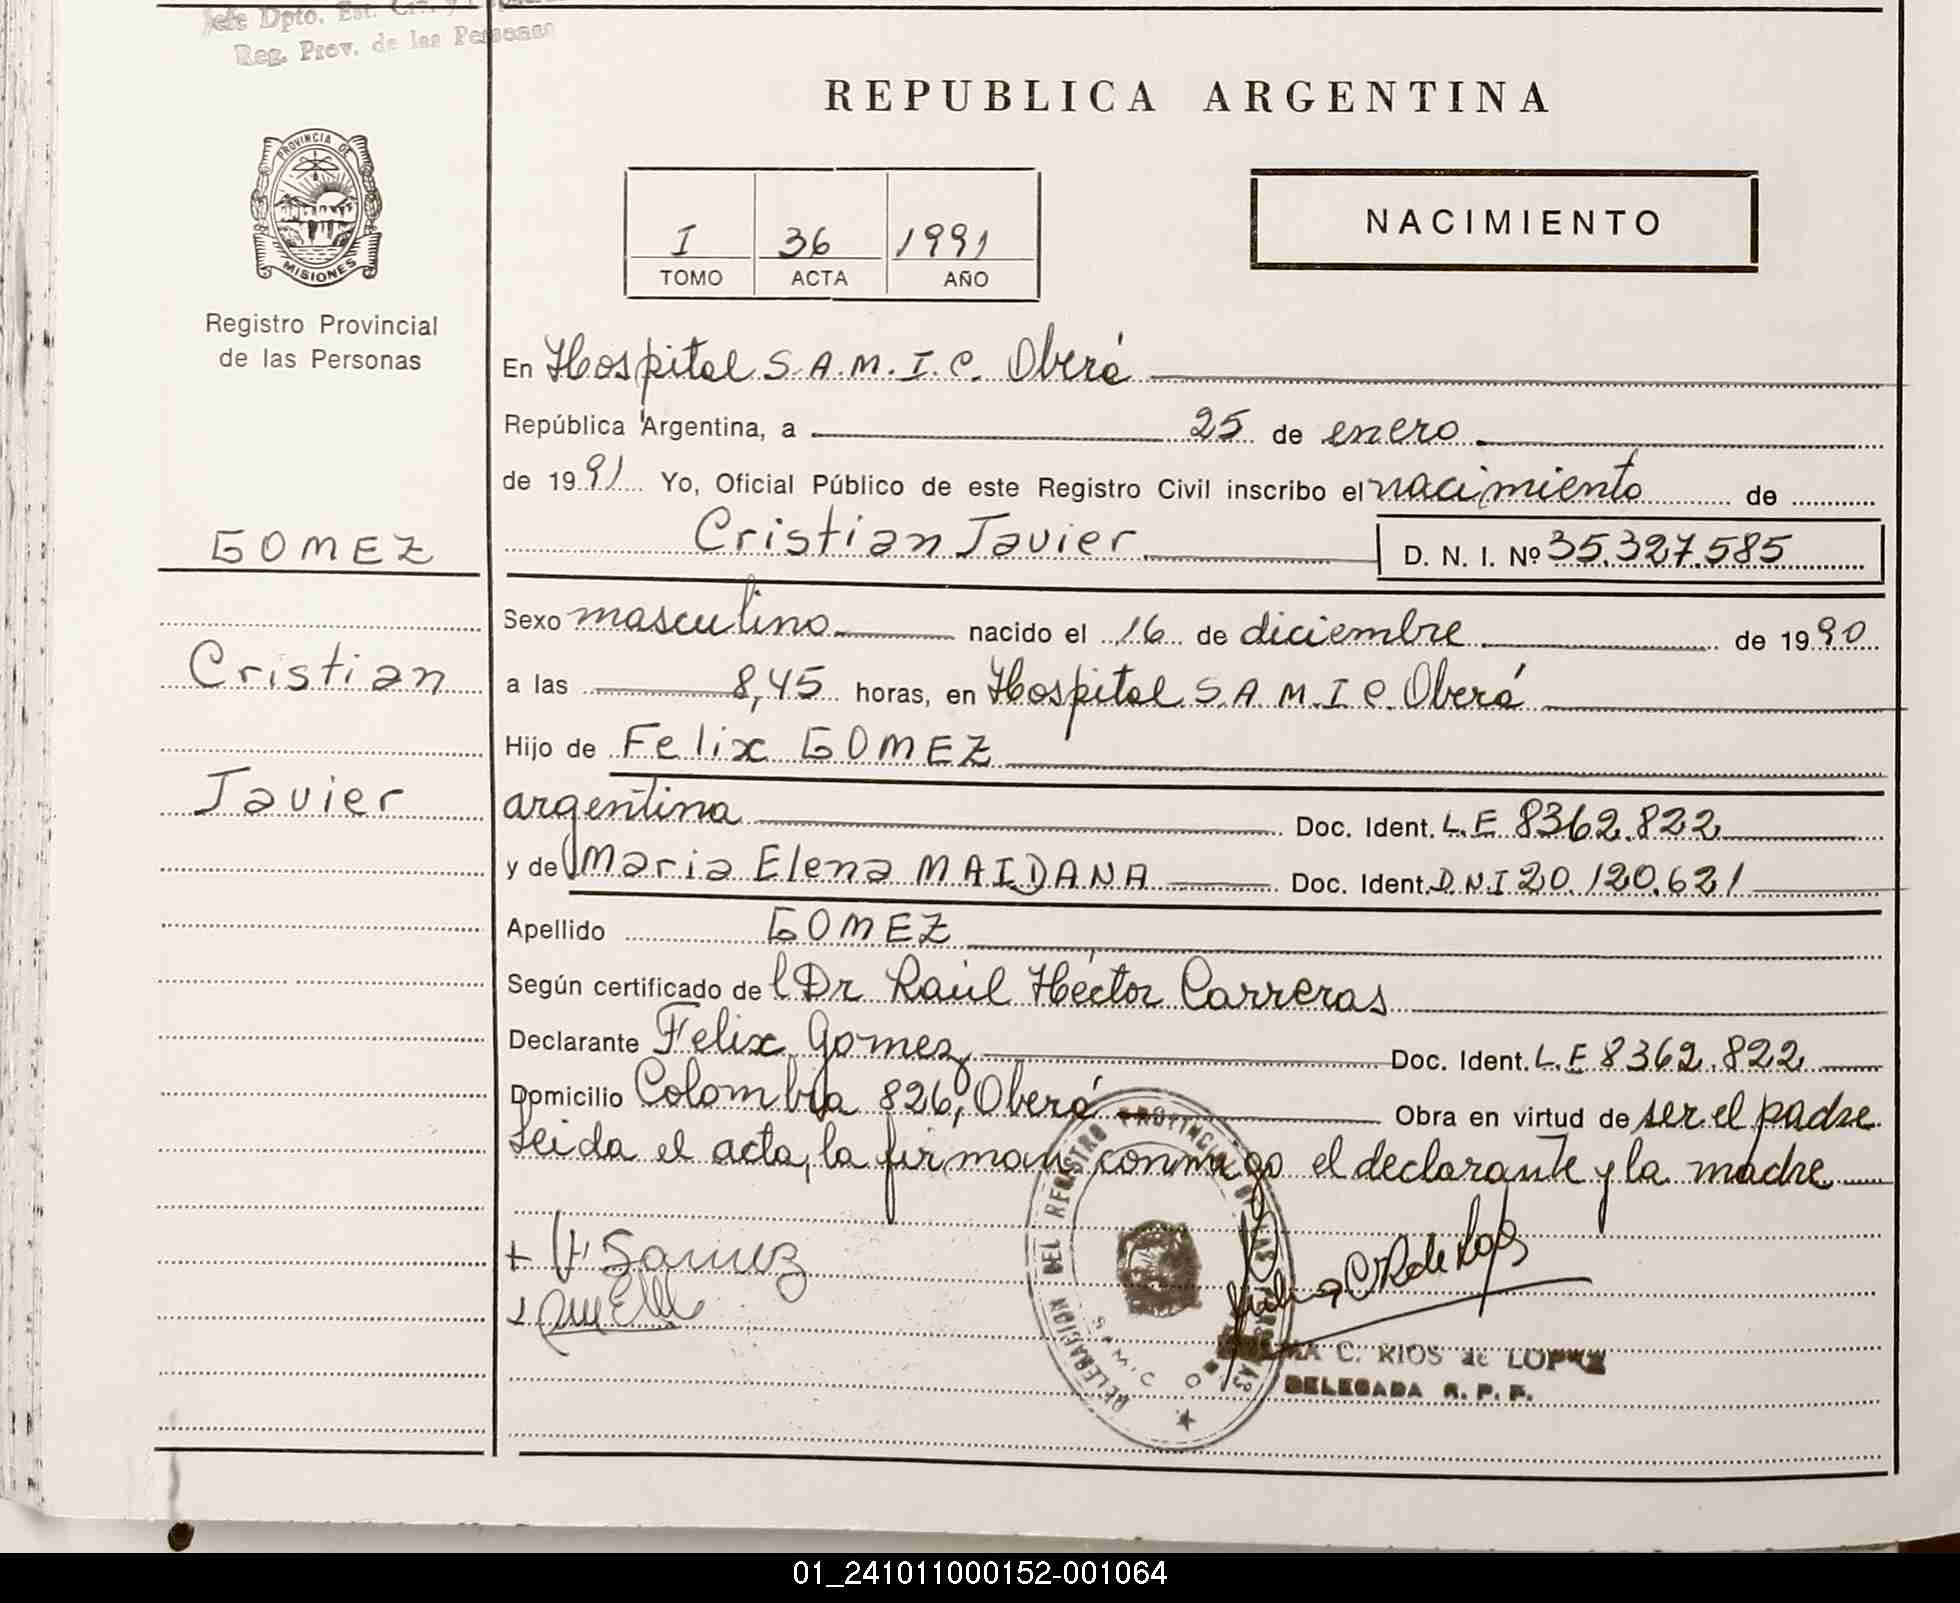 Jefe Dpto. Est. Civ. y
Reg. Prov. de las Personas
PROVINCIA DE
MISIONES
Registro Provincial
de las Personas
GOMEZ
Cristian
Javier
REPUBLICA ARGENTINA
I 36 1991
TOMO ACTA AÑO
NACIMIENTO
En Hospital S.A.M.I.C. Oberá
República Argentina, a 25 de enero
de 1991 Yo, Oficial Público de este Registro Civil inscribo el nacimiento de
Cristian Javier D. N. I. Nº 35.327.585
Sexo masculino nacido el 16 de diciembre de 1990
a las 8,45 horas, en Hospital S.A.M.I.C. Oberá
Hijo de Felix GOMEZ
argentina Doc. Ident. L.E 8362.822
y de Maria Elena MAIDANA Doc. Ident. D.N.I 20.120.621
Apellido GOMEZ
Según certificado del Dr Raúl Héctor Carreras
Declarante Felix Gomez Doc. Ident. L.E 8362.822
Domicilio Colombia 826, Oberá Obra en virtud de ser el padre
Leida el acta, la firman conmigo el declarante y la madre
DELEGACION DEL REGISTRO PROVINCIAL DE LAS PERSONAS
C. RIOS de LOPEZ
DELEGADA R. P. P.
01_241011000152-001064